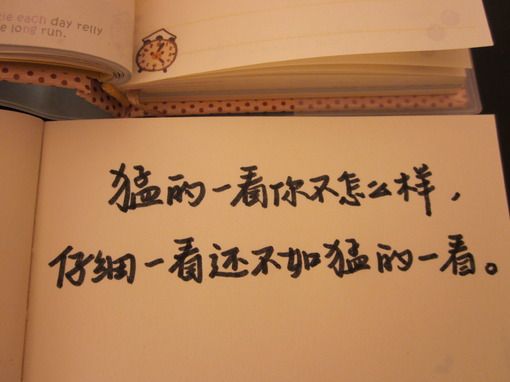 tle each day relly
e long run.
猛的一看你不怎么样，
仔细一看还不如猛的一看。